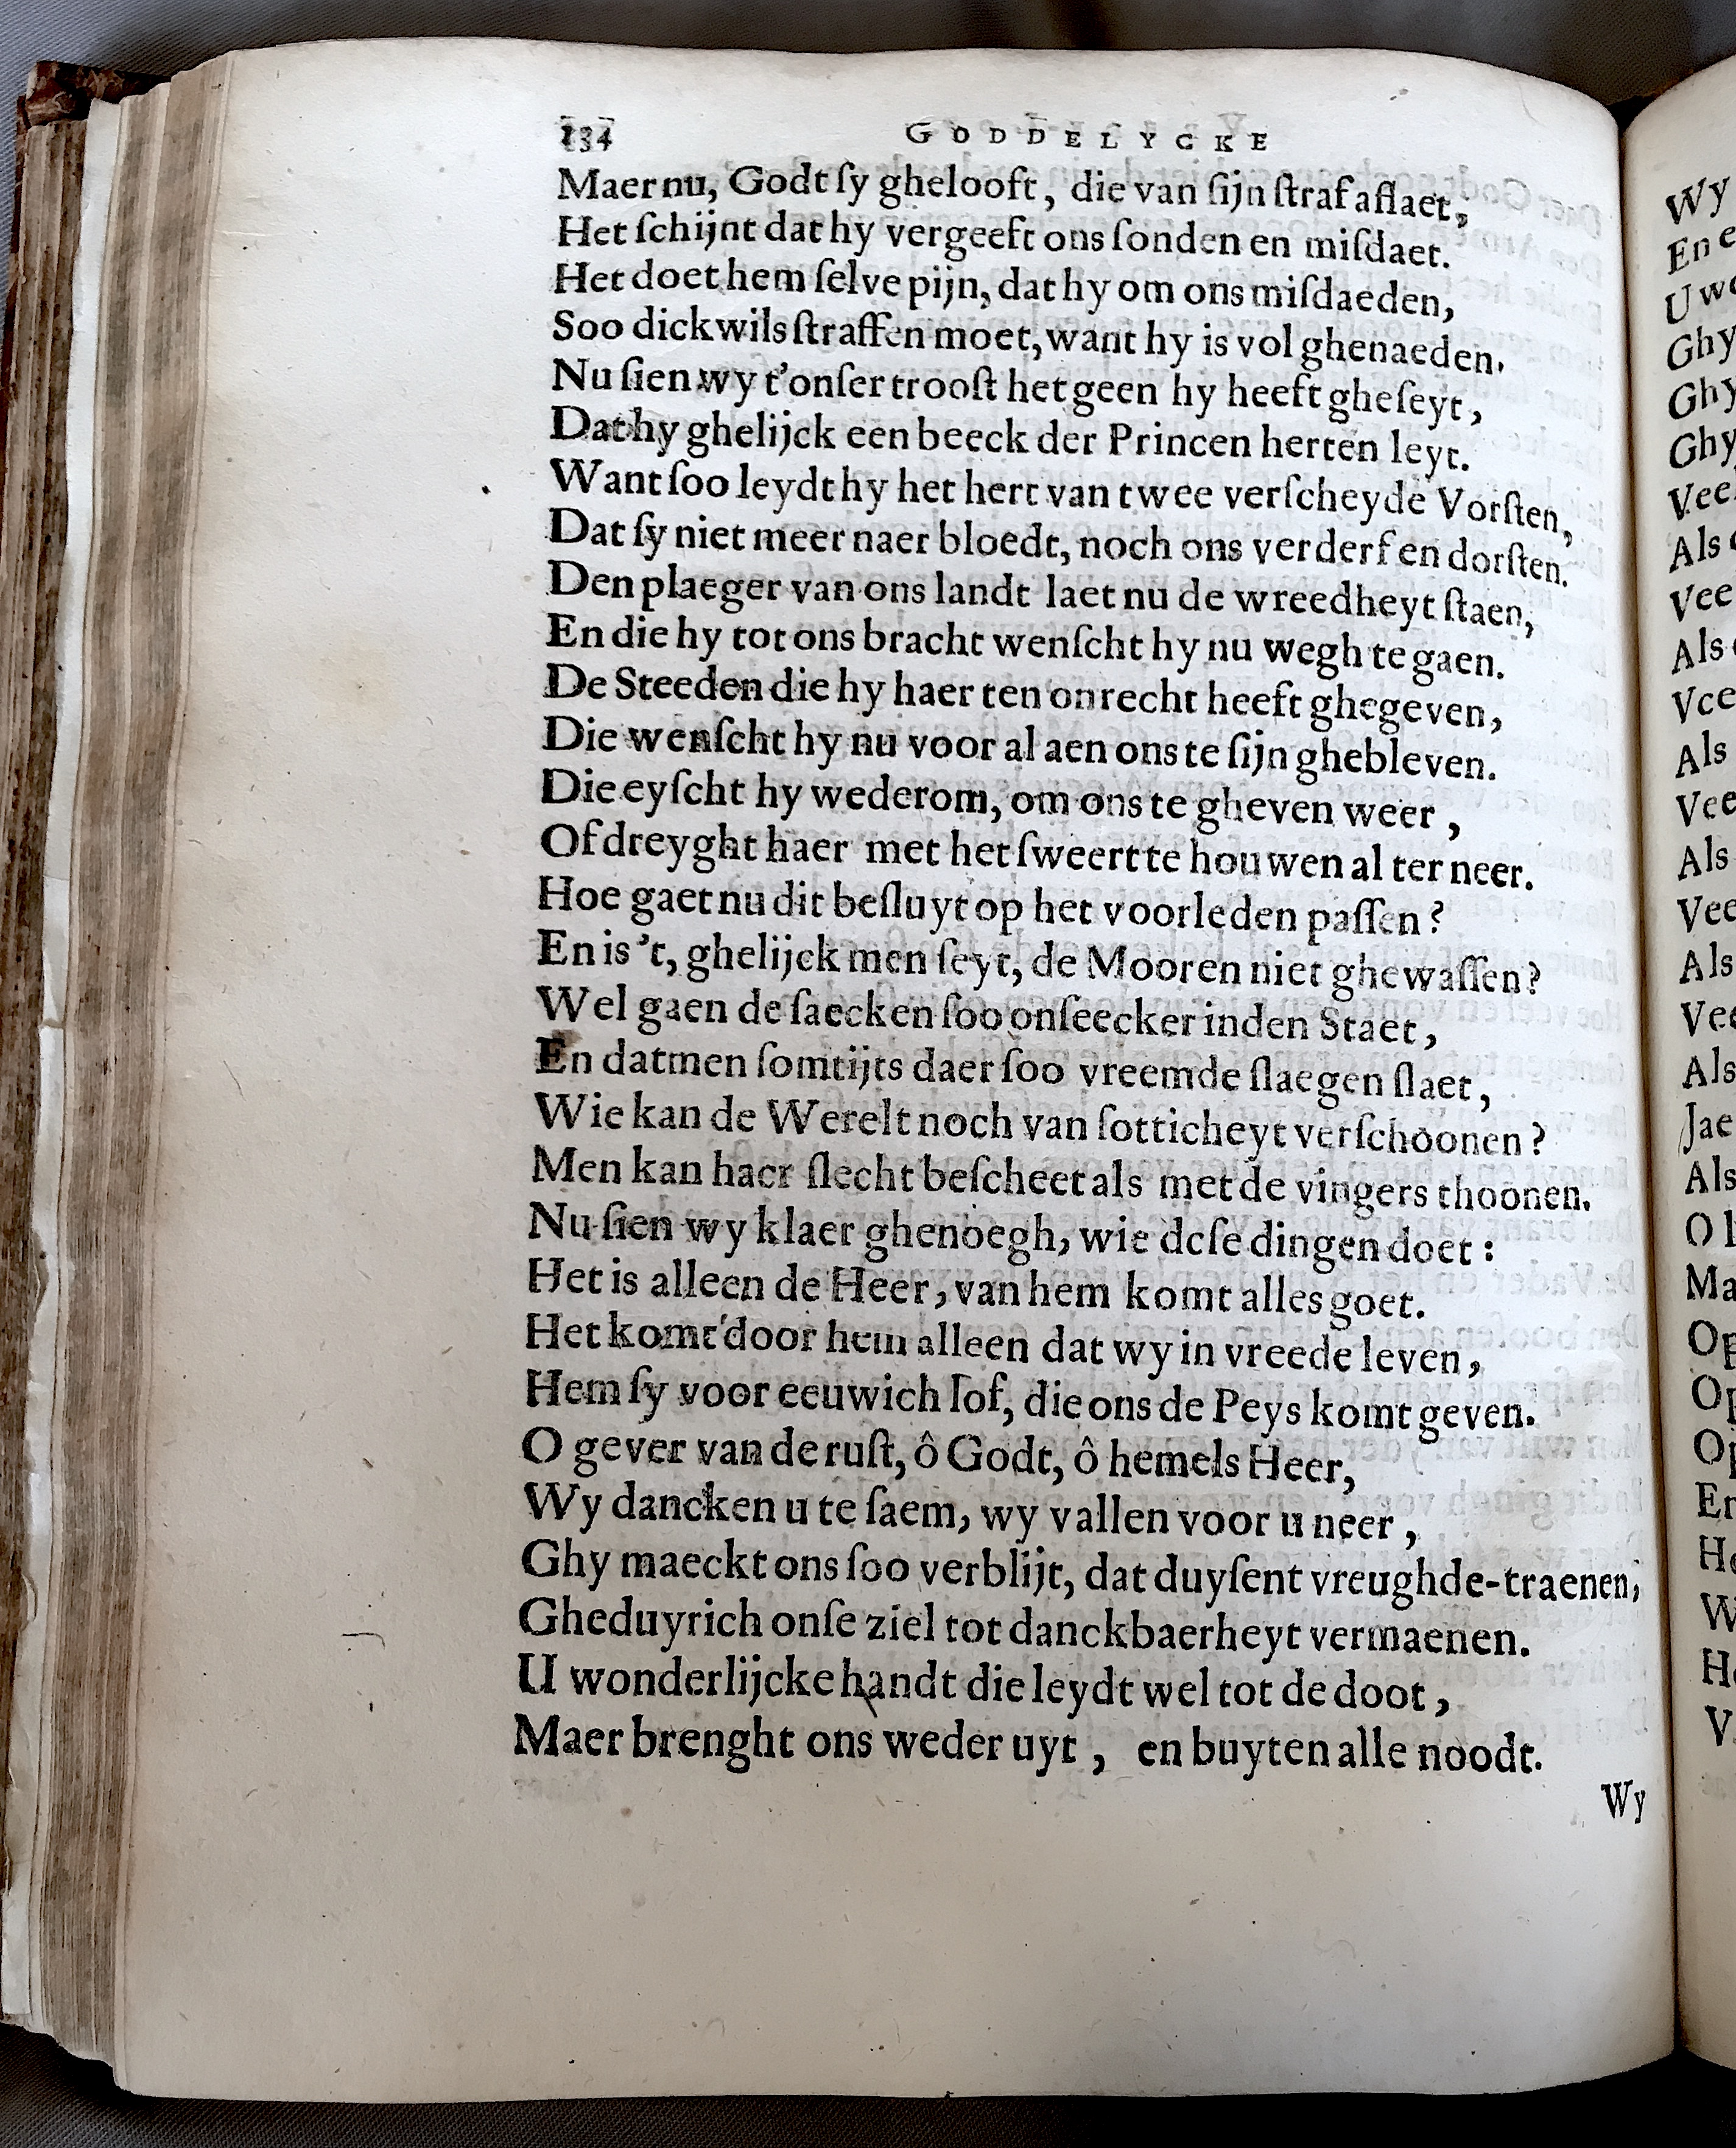 134 GODDELYCKE
Maer nu, Godt ſy ghelooft, die van ſijn ſtraf aflaet,
Het ſchijnt dat hy vergeeft ons ſonden en miſdaet.
Het doet hem ſelve pijn, dat hy om ons miſdaeden,
Soo dickwils ſtraffen moet, want hy is vol ghenaeden.
Nu ſien wy t'onſer trooſt het geen hy heeft gheſeyt,
Dat hy ghelijck een beeck der Princen herten leyt.
Want ſoo leydt hy het hert van twee verſcheyde Vorſten,
Dat ſy niet meer naer bloedt, noch ons verderf en dorſten.
Den plaeger van ons landt laet nu de wreedheyt ſtaen,
En die hy tot ons bracht wenſcht hy nu wegh te gaen.
De Steeden die hy haer ten onrecht heeft ghegeven,
Die wenſcht hy nu voor al aen ons te ſijn ghebleven.
Die eyſcht hy wederom, om ons te gheven weer,
Of dreyght haer met het ſweert te houwen al ter neer.
Hoe gaet nu dit beſluyt op het voorleden paſſen?
En is 't, ghelijck men ſeyt, de Mooren niet ghewaſſen?
Wel gaen de ſaecken ſoo onſeecker in den Staet,
En datmen ſomtijts daer ſoo vreemde ſlaegen ſlaet,
Wie kan de Werelt noch van ſotticheyt verſchoonen?
Men kan haer ſlecht beſcheet als met de vingers thoonen.
Nu ſien wy klaer ghenoegh, wie deſe dingen doet:
Het is alleen de Heer, van hem komt alles goet.
Het komt door hem alleen dat wy in vreede leven,
Hem ſy voor eeuwich lof, die ons de Peys komt geven.
O gever van de ruſt, ô Godt, ô hemels Heer,
Wy dancken u te ſaem, wy vallen voor u neer,
Ghy maeckt ons ſoo verblijt, dat duyſent vreughde-traenen,
Gheduyrich onſe ziel tot danckbaerheyt vermaenen.
U wonderlijcke handt die leydt wel tot de doot,
Maer brenght ons weder uyt, en buyten alle noodt.
Wy
Wy
En
Ghy
Ghy
Ghy
Vee
Als
Vee
Als
Vee
Als
Vee
Als
Vee
Als
Vee
Als
Jae
Als
O